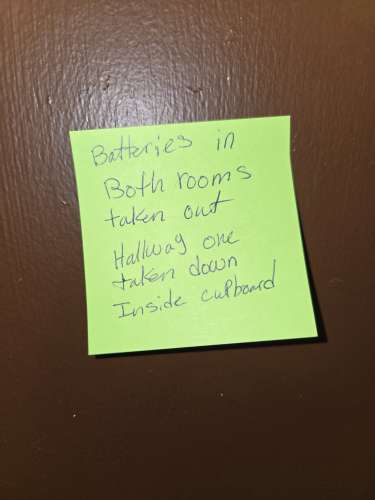 Batteries in
Both rooms
taken out
Hallway one
taken down
Inside cupboard